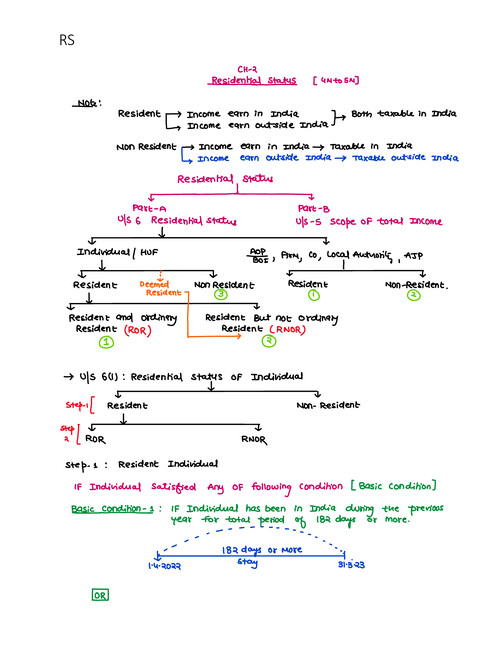 RS
CH-2
Residential Status [4M to 5M]
Note:
Resident → Income earn in India
→ Income earn outside India → Both taxable in India
Non Resident → Income earn in India → Taxable in India
→ Income earn outside India → Taxable outside India
Residential Status
Part-A Part-B
U/S 6 Residential Status U/S-5 Scope of total Income
Individual / HUF AOP/BOI, Firm, Co, Local Authority, AJP
Resident Deemed Resident Non Resident Resident Non-Resident.
③ ① ②
Resident and ordinary Resident But not ordinary
Resident (ROR) Resident (RNOR)
① ②
→ U/S 6(1) : Residential Status of Individual
Step-1 [ Resident Non-Resident
Step 2 [ ROR RNOR
Step-1 : Resident Individual
IF Individual Satisfied Any OF following condition [Basic Condition]
Basic Condition-1 : IF Individual has been in India during the previous
year for total period of 182 days or more.
182 days or more
1.4.2022 Stay 31.3.23
OR